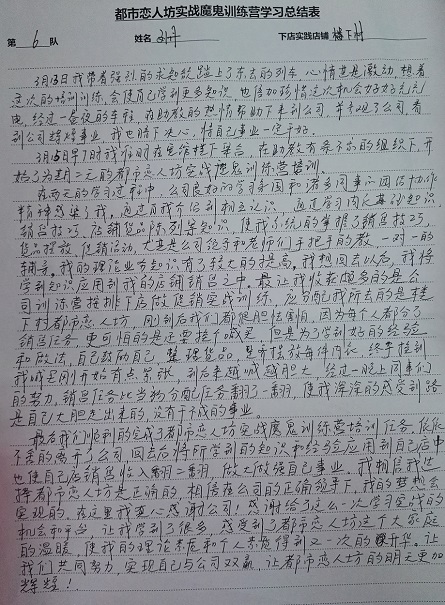 都市恋人坊实战魔鬼训练营学习总结表
第 6 队 姓名 下店实践店铺 楼下村
3月13日我带着强烈的求知欲踏上了东去的列车,心情甚是激动,想着
这次的培训训练,会使自己学到更多知识,也借助珍惜这次机会好好充充
电,经过一夜的车程,在助教的热情帮助下来到公司,并参观了公司,看
到公司辉煌事业,我也暗下决心,借自己事业一定干好。
3月15日早7时我们准时在思维楼下集合,在助教有条不紊的组织下,开
始了为期二天的都市恋人坊实战魔鬼训练营培训。
在两天的学习过程中,公司良好的学习氛围和诸多同事的团结协作
精神感染了我,通过自我介绍到相互认识,通过学习内衣基础知识,
销售技巧,店铺货品陈列等知识,使我系统的掌握了销售技巧,
货品摆放,促销活动,尤其是公司领导和老师们手把手的教,一对一的
辅导,我的理论业务知识有了较大的提高,我想回去以后,我将
学到知识应用到我的店铺销售之中。最让我收获颇多的是公
司训练营安排下店做促销实战训练,应分配我所去的是楼
下村都市恋人坊,刚到店我们都很胆怯害怕,因为每个人都分了
销售任务,更可怕的是还要挨个喊麦,但是为了学到好的经验
和做法,自己鼓励自己,整理货品,是齐挂放每件内衣,终于挨到
我喊麦刚开始有点紧张,到后来越喊越胆大,经过一晚上同事们
的努力,销售任务比当初分配任务翻了一翻,使我深深的感受到路
是自己大胆走出来的,没有干不成的事业。
最后我们顺利的完成了都市恋人坊实战魔鬼训练营培训任务,依依
不舍的离开了公司,回去后将所学到的知识和经验应用到自己店中
也使自己店销售收入翻二番,做大做强自己事业,我相信我选
择都市恋人坊是正确的,相信在公司的正确领导下,我的梦想会
实现的,在这里我衷心感谢公司!感谢给了这么一次学习实战的
机会和平台,让我学到了很多,感受到了都市恋人坊这个大家庭
的温暖,使我的理论素质和个人素质得到又一次的提升华。让
我们共同努力,实现自己与公司双赢,让都市恋人坊的明天更加
辉煌!